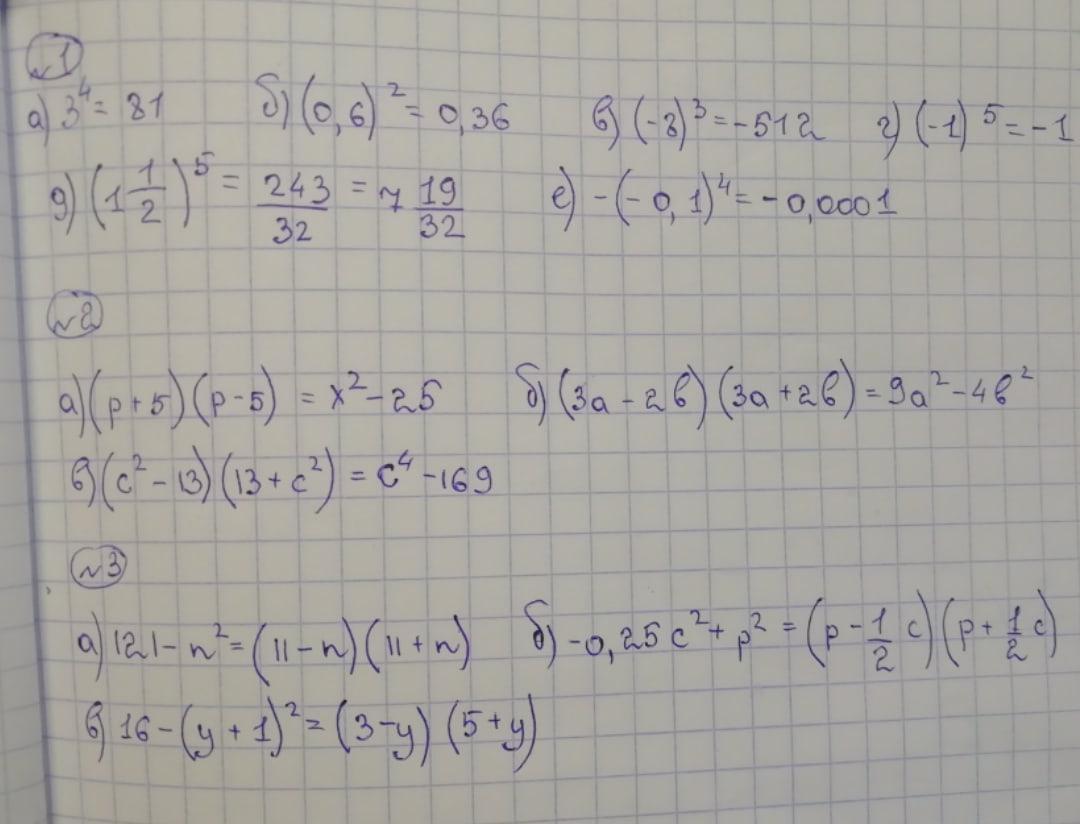 №1
а) 3⁴ = 81 б) (0,6)² = 0,36 в) (-8)³ = -512 г) (-1)⁵ = -1
д) (1 1/2)⁵ = 243/32 = 7 19/32 е) -(-0,1)⁴ = -0,0001
№2
а) (p+5)(p-5) = x² - 25 б) (3a - 2b)(3a + 2b) = 9a² - 4b²
в) (c² - 13)(13 + c²) = c⁴ - 169
№3
а) 121 - n² = (11 - n)(11 + n) б) -0,25c² + p² = (p - 1/2 c)(p + 1/2 c)
в) 16 - (y + 1)² = (3 - y)(5 + y)